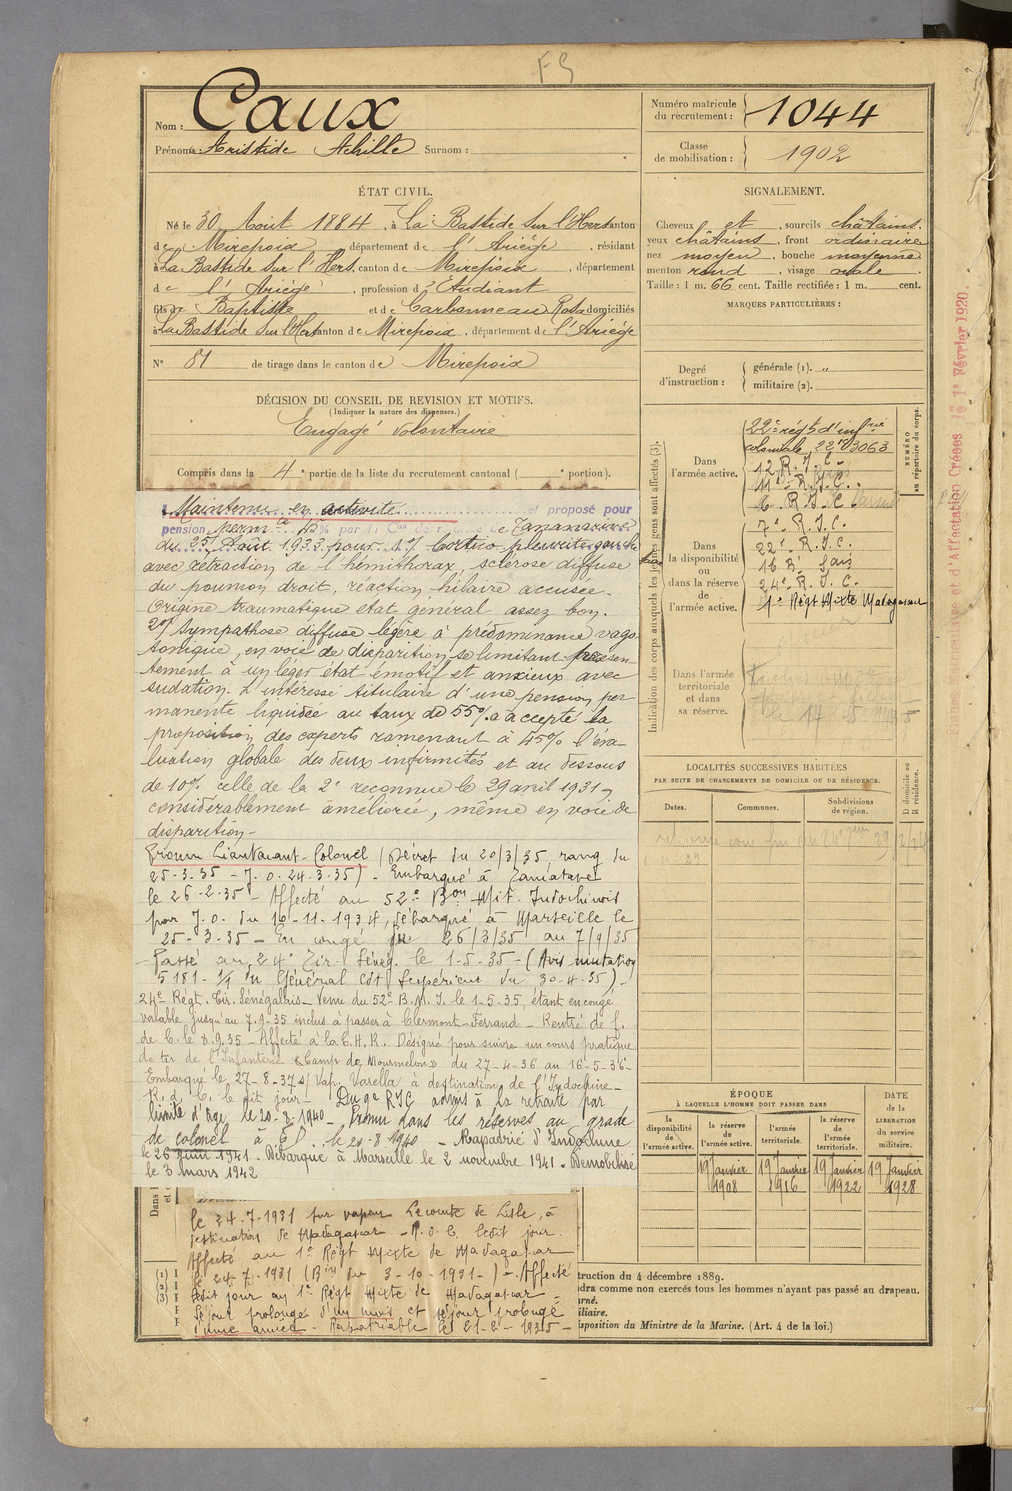 F5
Nom : Caux
Prénoms : Aristide Achille Surnom :
Numéro matricule du recrutement : 1044
Classe de mobilisation : 1902
ÉTAT CIVIL.
Né le 30 Août 1884, à La Bastide sur l'Hers canton
de Mirepoix département de l'Ariège, résidant
à La Bastide sur l'Hers, canton de Mirepoix, département
de l'Ariège, profession d'Etudiant
fils de Baptiste et de Carbonneau Rosa domiciliés
à La Bastide sur l'Hers canton de Mirepoix, département de l'Ariège
N° 81 de tirage dans le canton de Mirepoix
DÉCISION DU CONSEIL DE REVISION ET MOTIFS.
(Indiquer la nature des dispenses.)
Engagé volontaire
Compris dans la 4e partie de la liste du recrutement cantonal ( portion).
SIGNALEMENT.
Cheveux et, sourcils châtains,
yeux châtains, front ordinaire
nez moyen, bouche moyenne
menton rond, visage ovale
Taille : 1 m. 66 cent. Taille rectifiée : 1 m. cent.
MARQUES PARTICULIÈRES :
Degré d'instruction : générale (1). „
militaire (2).
Indication des corps auxquels les jeunes gens sont affectés (3).
NUMÉRO au répertoire du corps.
Dans l'armée active.
22e régt d'infrie
coloniale 22 no 3063
12 R. I. C.
11e R. I. C.
6 R. I. C.
Dans la disponibilité ou dans la réserve de l'armée active.
7e R. I. C.
22e R. I. C.
16 R.
24e R. I. C.
1e Régt Mixte Madagascar
Dans l'armée territoriale et dans sa réserve.
d'Affectation Créées le 1er Février 1920.
Maintenu en activité et proposé pour
pension perm. 45% par la Con de réforme de Tananarive
du 25 Août 1933 pour 1°/ Cortico pleurite gauche
avec rétraction de l'hémithorax, sclérose diffuse
du poumon droit, réaction hilaire accusée.
Origine traumatique état général assez bon.
2°/ Sympathose diffuse légère à prédominance vago
tonique, en voie de disparition, se limitant présen
tement à un léger état émotif et anxieux avec
sudation. L'intéressé titulaire d'une pension per
manente liquidée au taux de 55% a accepté la
proposition des experts ramenant à 45% l'éva-
luation globale des deux infirmités et au dessous
de 10% celle de la 2e reconnue le 29 avril 1931
considérablement améliorée, même en voie de
disparition -
Promu Lieutenant-Colonel (Décret du 20/3/35, rang du
25-3-35 - J.O. 24-3-35) - Embarqué à Tamatave
le 26-2-35 - Affecté au 52e Bon Mit. Indochinois
par J.O. du 10-11-1934, débarqué à Marseille le
25-3-35 - En congé du 26/3/35 au 7/9/35
- Passé au 24e Tir. Sénég. le 1-5-35 - (Avis mutation
5181-1/1 du Général Cdt Supérieur du 30-4-35) -
24e Régt. Tir. Sénégalais - Venu du 52e B.M.I. le 1-5-35, étant en congé
valable jusqu'au 7-9-35 inclus à passer à Clermont-Ferrand - Rentré de f.
de C. le 8.9.35 - Affecté à la C.H.R. Désigné pour suivre un cours pratique
de tir de l'Infanterie (Camp de Mourmelon) du 27-4-36 au 16-5-36 -
Embarqué le 27-8-37 s/ Vap. Varella à destination de l'Indochine -
R. d. C. le dit jour - Du 9e RIC admis à la retraite par
limite d'âge le 20-8-1940 - Promu dans les réserves au grade
de colonel le 20-8-1940 - Rapatrié d'Indochine
le 26 juin 1941. Débarqué à Marseille le 2 novembre 1941. Démobilisé
le 3 mars 1942
le 24-7-1931 sur vapeur Leconte de Lisle, à
destination de Madagascar - R. d. C. ledit jour.
Affecté au 1e Régt Mixte de Madagascar
le 24-7-1931 (Bin du 3-10-1931-) - Affecté
ledit jour au 1e Régt Mixte de Madagascar
Séjour prolongé d'un mois et séjour prolongé
d'une année - Rapatriable le 21-2-1935 -
LOCALITÉS SUCCESSIVES HABITÉES
PAR SUITE DE CHANGEMENTS DE DOMICILE OU DE RÉSIDENCE.
Dates. Communes. Subdivisions de région. D domicile ou R résidence.
ÉPOQUE
À LAQUELLE L'HOMME DOIT PASSER DANS
la disponibilité de l'armée active. la réserve de l'armée active. l'armée territoriale. la réserve de l'armée territoriale.
DATE de la LIBÉRATION du service militaire.
19 Janvier 1908 19 Janvier 1916 19 Janvier 1922 19 Janvier 1928
(1) I
(2) I
(3) I
truction du 4 décembre 1889.
dra comme non exercés tous les hommes n'ayant pas passé au drapeau.
urné.
iliaire.
isposition du Ministre de la Marine. (Art. 4 de la loi.)